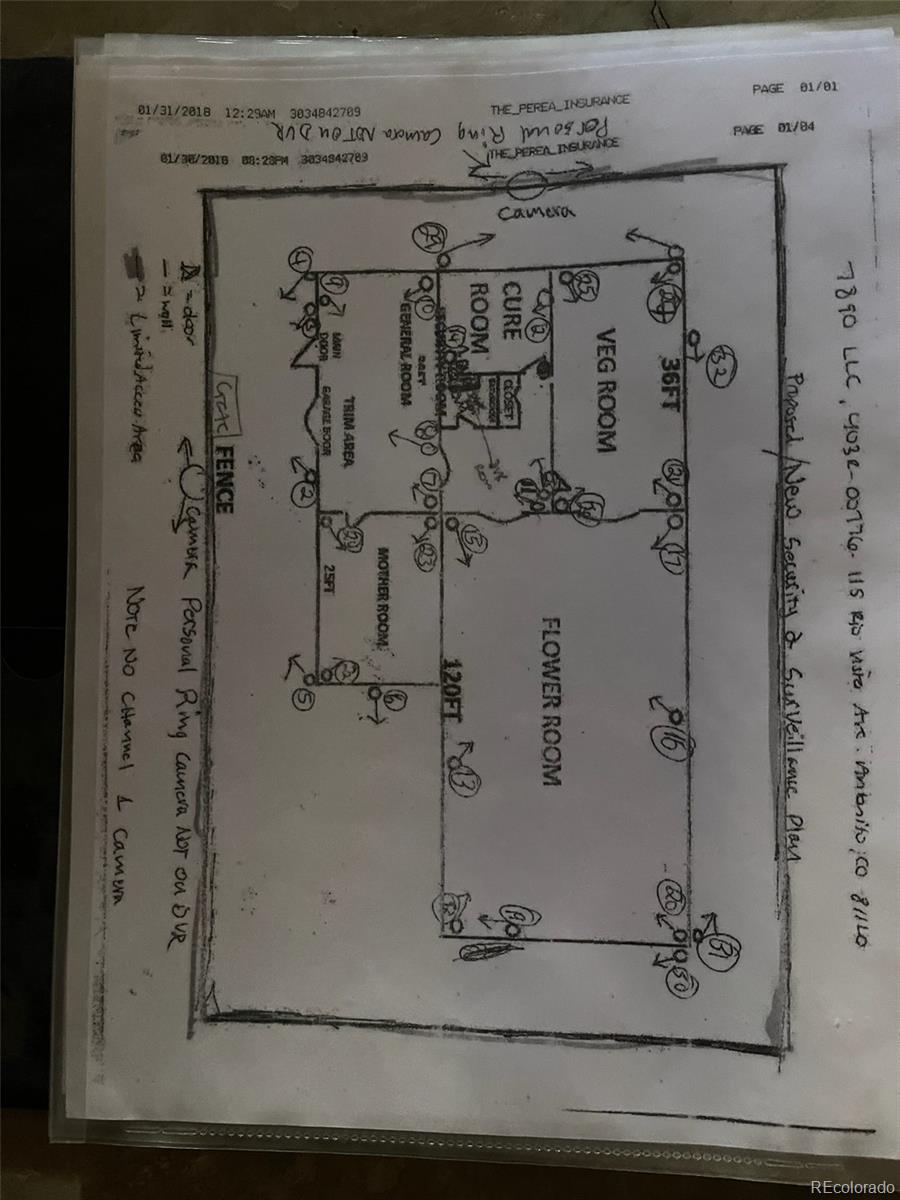 PAGE 01/01
01/31/2018 12:29AM 3034842709 THE_PEREA_INSURANCE
Personal Ring Camera NOT ON DVR
PAGE 01/04
01/30/2018 08:28PM 3034842709 THE_PEREA_INSURANCE
7890 LLC, 403R-00776. 115 Rio Vista Ave. Antonito, CO 81140
Proposed/New Security & Surveillance Plan
Camera
36FT
VEG ROOM
CURE
ROOM
CLOSET
GENERAL ROOM
TRIM AREA
MAIN
DOOR
GARAGE DOOR
MOTHER ROOM
25FT
FLOWER ROOM
120FT
4
9
10
12
14
35
32
2
7
11
15
17
23
5
6
16
13
19
31
30
Gate
FENCE
Camera Personal Ring Camera Not on DVR
Note No Channel 1 Camera
= door
- = wall
= Limited Access Area
REcolorado